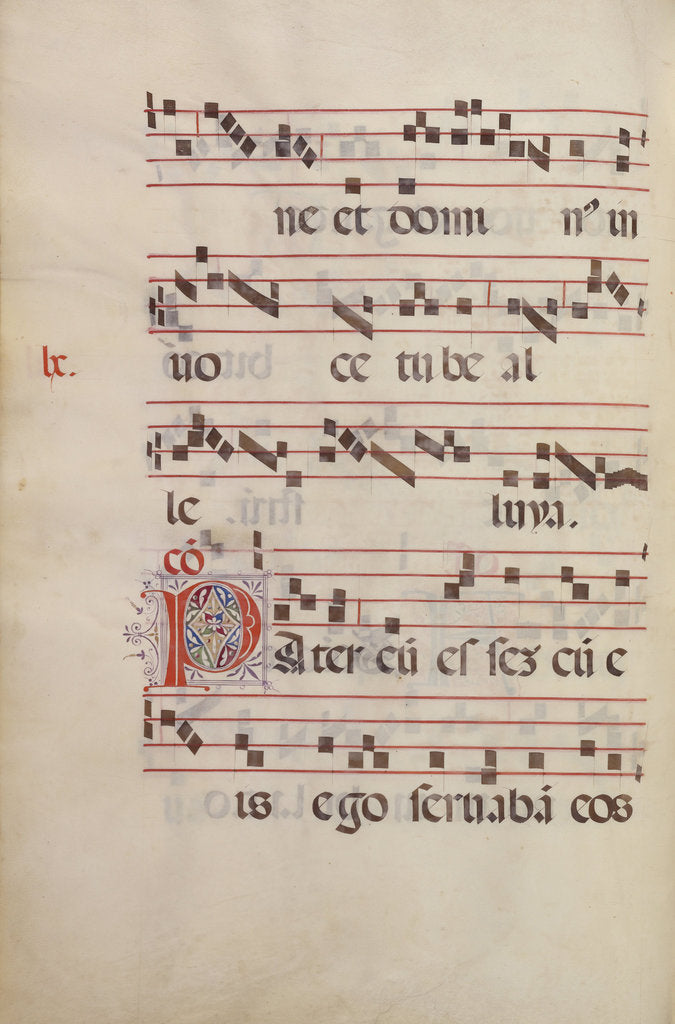 ne et domi n⁹ in
lx.
uo ce tu be al
le luya.
cō
Pater cū es sez cū e
is ego seruabā eos